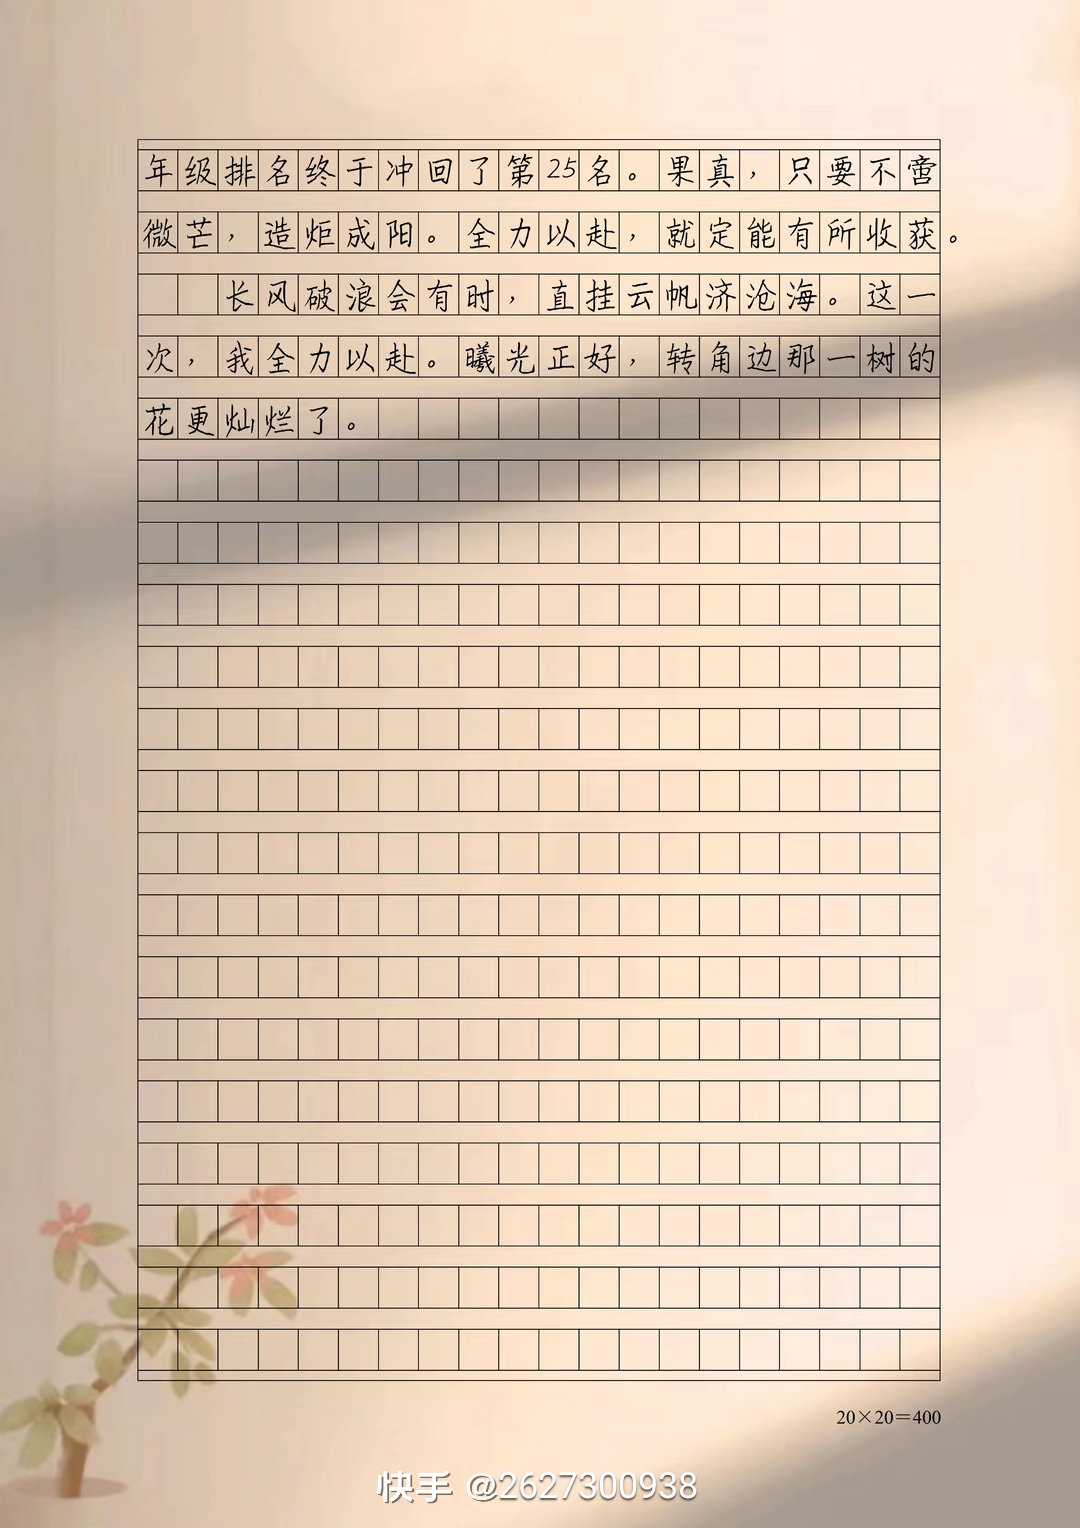 年级排名终于冲回了第25名。果真，只要不啻
微芒，造炬成阳。全力以赴，就定能有所收获。
长风破浪会有时，直挂云帆济沧海。这一
次，我全力以赴。曦光正好，转角边那一树的
花更灿烂了。
20×20＝400
快手 @2627300938